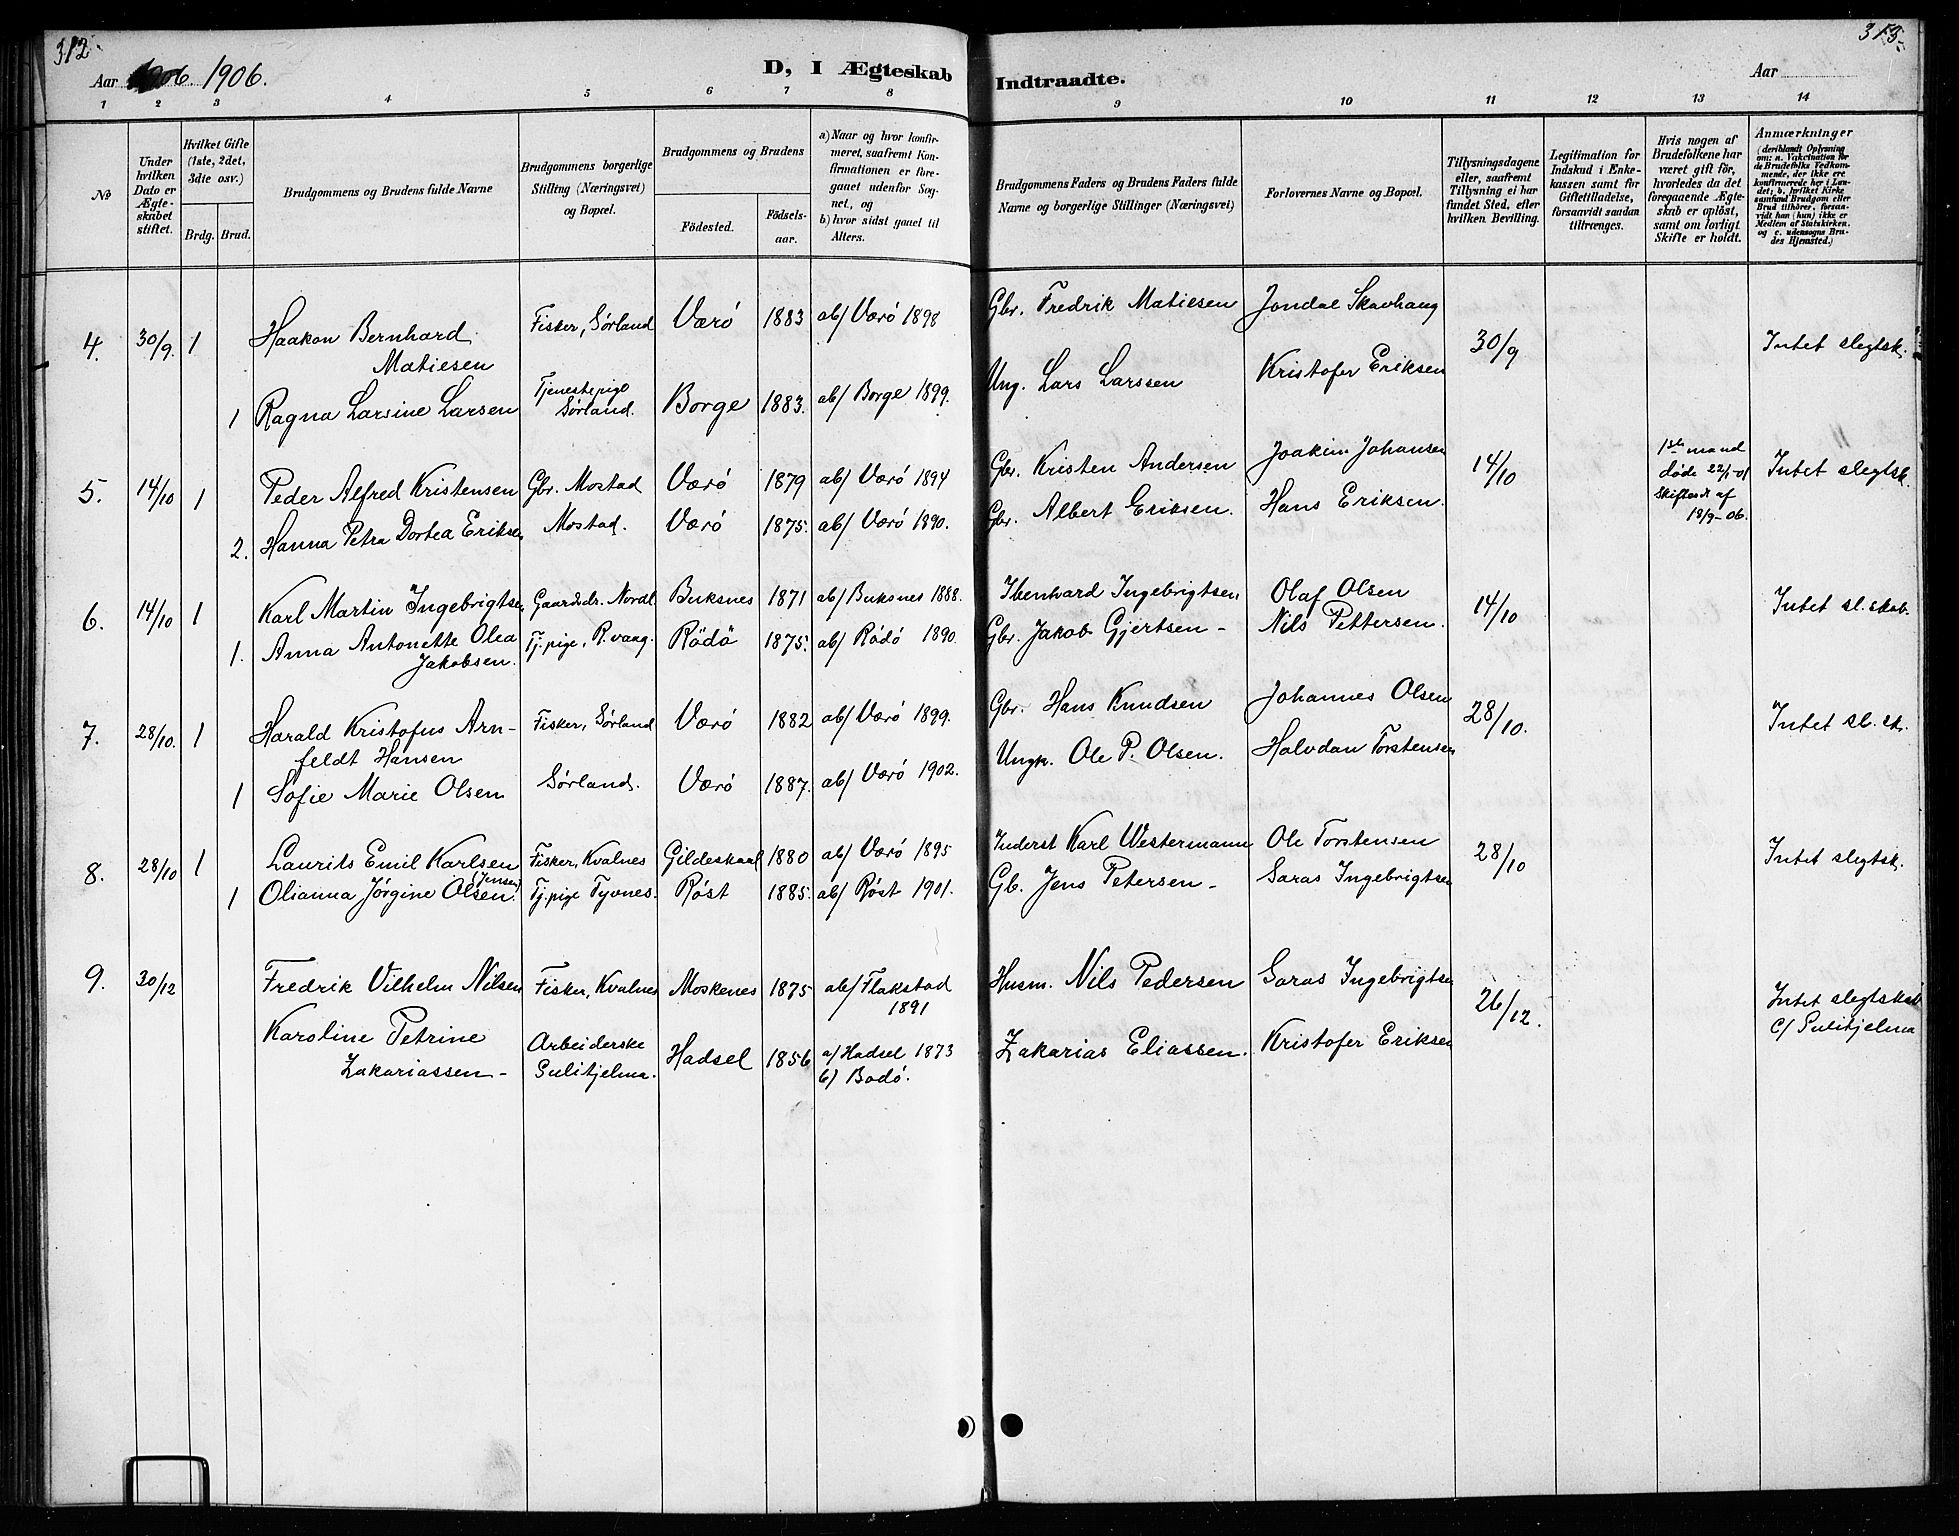 312.
Aar 1906. 1906.
D, I Ægteskab
Indtraadte.
Aar
313.
1 2 3 4 5 6 7 8 9 10 11 12 13 14
No
Under hvilken Dato er Ægteskabet stiftet.
Hvilket Gifte (1ste, 2det, 3die osv.)
Brdg. Brud.
Brudgommens og Brudens fulde Navne
Brudgommens borgerlige Stilling (Næringsvei) og Bopæl.
Brudgommens og Brudens
Fødested.
Fødselsaar.
a) Naar og hvor konfirmeret, saafremt Konfirmationen er foregaaet udenfor Sognet, og
b) hvor sidst gaaet til Alters.
Brudgommens Faders og Brudens Faders fulde Navne og borgerlige Stillinger (Næringsvei)
Forlovernes Navne og Bopæl.
Tillysningsdagene eller, saafremt Tillysning ei har fundet Sted, efter hvilken Bevilling.
Legitimation for Indskud i Enkekassen samt for Giftetilladelse, forsaavidt saadan tiltrænges.
Hvis nogen af Brudefolkene har været gift før, hvorledes da det foregaaende Ægteskab er opløst, samt om lovligt Skifte er holdt.
Anmærkninger
(deriblandt Oplysning om: a. Vakcination for de Brudefolks Vedkommende, der ikke ere konfirmerede her i Landet; b. hvilket Kirkesamfund Brudgom eller Brud tilhører, forsaavidt han (hun) ikke er Medlem af Statskirken. og c. udensogns Brudes Hjemsted.)
4. 30/9. 1 Haakon Bernhard Matiesen Fisker, Sørland Værö 1883 ab/ Værö 1898 Gbr. Fredrik Matiesen Jondal Skavhaug 30/9 Intet slegtsk.
1 Ragna Larsine Larsen Tjenestepige Sørland. Borge 1883. ab/ Borge 1899. Ung. Lars Larssen Kristofer Eriksen
5. 14/10 1 Peder Alfred Kristensen Gbr. Mostad Værö 1879 ab/ Værö 1894 Gbr. Kristen Andersen Joakim Johansen 14/10 1ste mand døde 22/1-01 Skifteat af 18/9-06. Intet slegtsk.
2. Hanna Petra Dortea Eriksen Mostad. Værö 1875. ab/ Værö 1890. Gbr. Albert Eriksen. Hans Eriksen.
6. 14/10 1 Karl Martin Ingebrigtsen Gaardbr. Nordl. Buksnes 1871 ab/ Buksnes 1888. Ibenhard Ingebrigtsen Olaf Olsen 14/10 Intet sl.skab.
1. Anna Antonette Olea Jakobsen. Tj.pige, R.vaag. Rödö 1875. ab/ Rödö 1890. Gbr. Jakob Gjertsen - Nils Pettersen.
7. 28/10. 1 Harald Kristofus Arnfeldt Hansen Fisker, Sørland Værö 1882 ab/ Værö 1899. Gbr. Hans Knudsen Johannes Olsen 28/10. Intet sl. sk.
1 Sofie Marie Olsen Sørland. Værö 1887. ab/ Værö 1902. Ungk. Ole P. Olsen. Halvdan Torstensen
8. 28/10 1 Laurits Emil Karlsen Fisker, Kvalnes Gildeskaal 1880 ab/ Værö 1895 Inderst Karl Westermann Ole Torstensen 28/10 Intet slegtsk.
1 Olianna Jørgine Olsen. (Jensen) Tj.pige Tyvnes. Røst 1885. ab/ Røst 1901. Gb. Jens Petersen - Saras Ingebrigtsen
9. 30/12 Fredrik Vilhelm Nilsen Fisker, Kvalnes Moskenes 1875 ab/ Flakstad 1891 Husm. Nils Pedersen Saras Ingebrigtsen 26/12. Intet slegtskab c/ Sulitjelma
Karoline Petrine Zakariassen - Arbeiderske Sulitjelma. Hadsel 1856 a/ Hadsel 1873 b/ Bodø. Zakarias Eliassen. Kristofer Eriksen